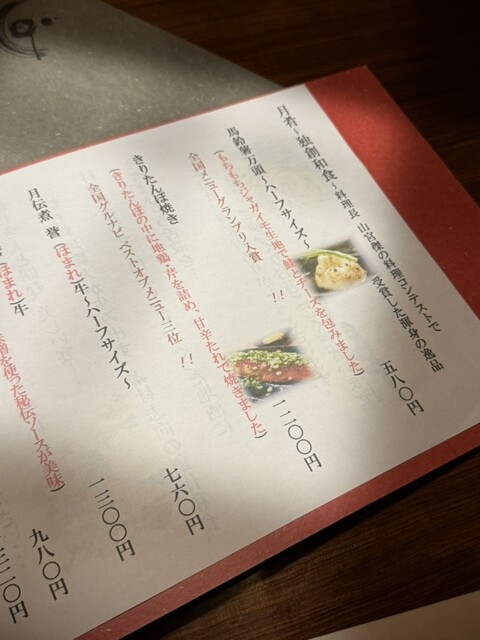 月肴～独創和食～料理長 山宮傑の料理コンテストで
受賞した渾身の逸品
馬鈴薯万頭～ハーフサイズ～ 五八〇円
(もちもちジャガイモ生地で鮭とチーズを包みました)
全国メニューグランプリ入賞 !!
きりたんぽ焼き 一二〇〇円
(きりたんぽの中に地鶏・丼を詰め、甘辛たれで焼きました)
全国グルナビ、ベストオブメニュー三位 !!
月伝煮 誉(ほまれ)牛～ハーフサイズ～ 七六〇円
(ほまれ)牛 一三〇〇円
を使った秘伝ソースが美味)
九八〇円
三二〇円